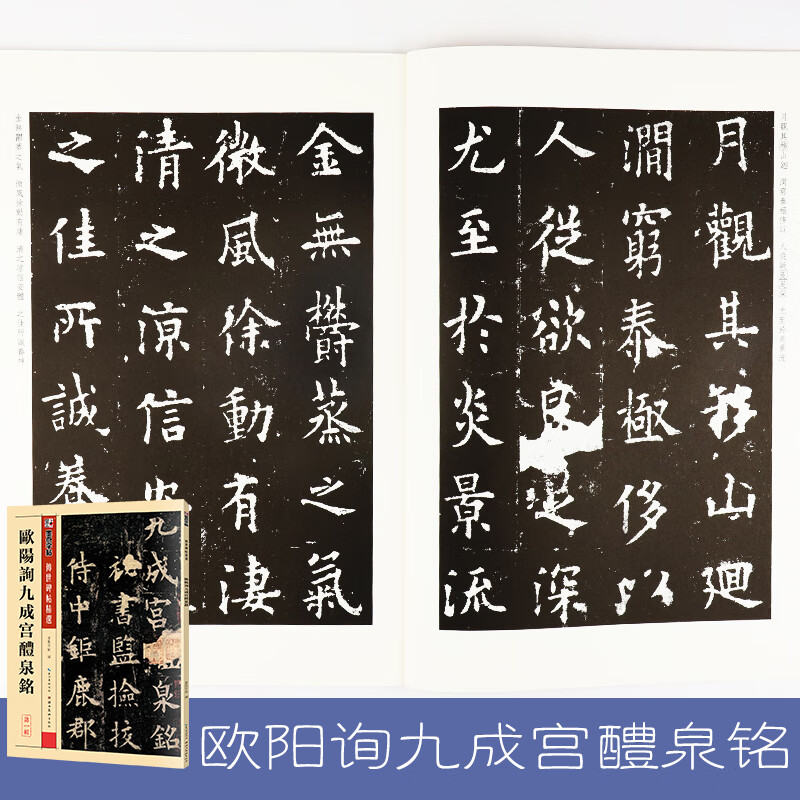 月觀其移山廻
澗窮泰極侈以
人從欲良足深
尤至於炎景流
月觀其移山廻 澗窮泰極侈以 人從欲良足深 尤至於炎景流
金無鬱蒸之氣
微風徐動有淒
清之涼信安
之佳所誠養
金無鬱蒸之氣 微風徐動有淒 清之涼信安體 之佳所誠養神
九成宮醴泉銘
秘書監撿挍
侍中鉅鹿郡
傳世碑帖精選
歐陽詢九成宮醴泉銘
第一輯
欧阳询九成宫醴泉铭